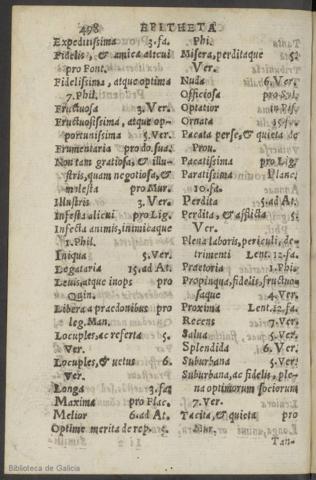 498 EPITHETA
Expeditissima 3.fa.
Fidelis, & amica alicui
pro Font.
Fidelissima, atque optima
7.Phil.
Fructuosa 3.Ver.
Fructuosissima, atque op-
portunissima 5.Ver.
Frumentaria pro do.sua.
Non tam gratiosa, & illu-
stris, quam negotiosa, &
molesta pro Mur.
Illustris 3.Ver.
Infesta alicui pro Lig.
Infecta animis, inimicaque
1.Phil.
Iniqua 5.Ver.
Legataria 15.ad At.
Leuis, atque inops pro
Quin.
Libera a praedonibus pro
leg.Man.
Locuples, ac referta 5.
Ver.
Locuples, & uetus 6.
Ver.
Longa 3.fa.
Maxima pro Flac.
Melior 6.ad At.
Optime merita de rep. 5.
Phi.
Misera, perditaque 5.
Ver.
Nuda 6.Ver.
Officiosa pro Syl.
Optatior in Pis.
Ornata
Pacata per se, & quieta de
Prou.
Pacatissima pro Lig.
Paratissima Planc.
10.fa.
Perdita 15.ad At.
Perdita, & afflicta 5.
Ver.
Plena laboris, periculi, de-
trimenti Lent.12.fa.
Praetoria 1.Phi.
Propinqua, fidelis, fructuo-
saque 4.Ver.
Proxima Lent.12.fa.
Recens 7.Ver.
Salua 5.Ver.
Splendida 6.Ver.
Suburbana 5.Ver.
Suburbana, ac fidelis, ple-
na optimorum sociorum
7.Ver.
Tacita, & quieta pro
Mur.
Tan-
Biblioteca de Galicia